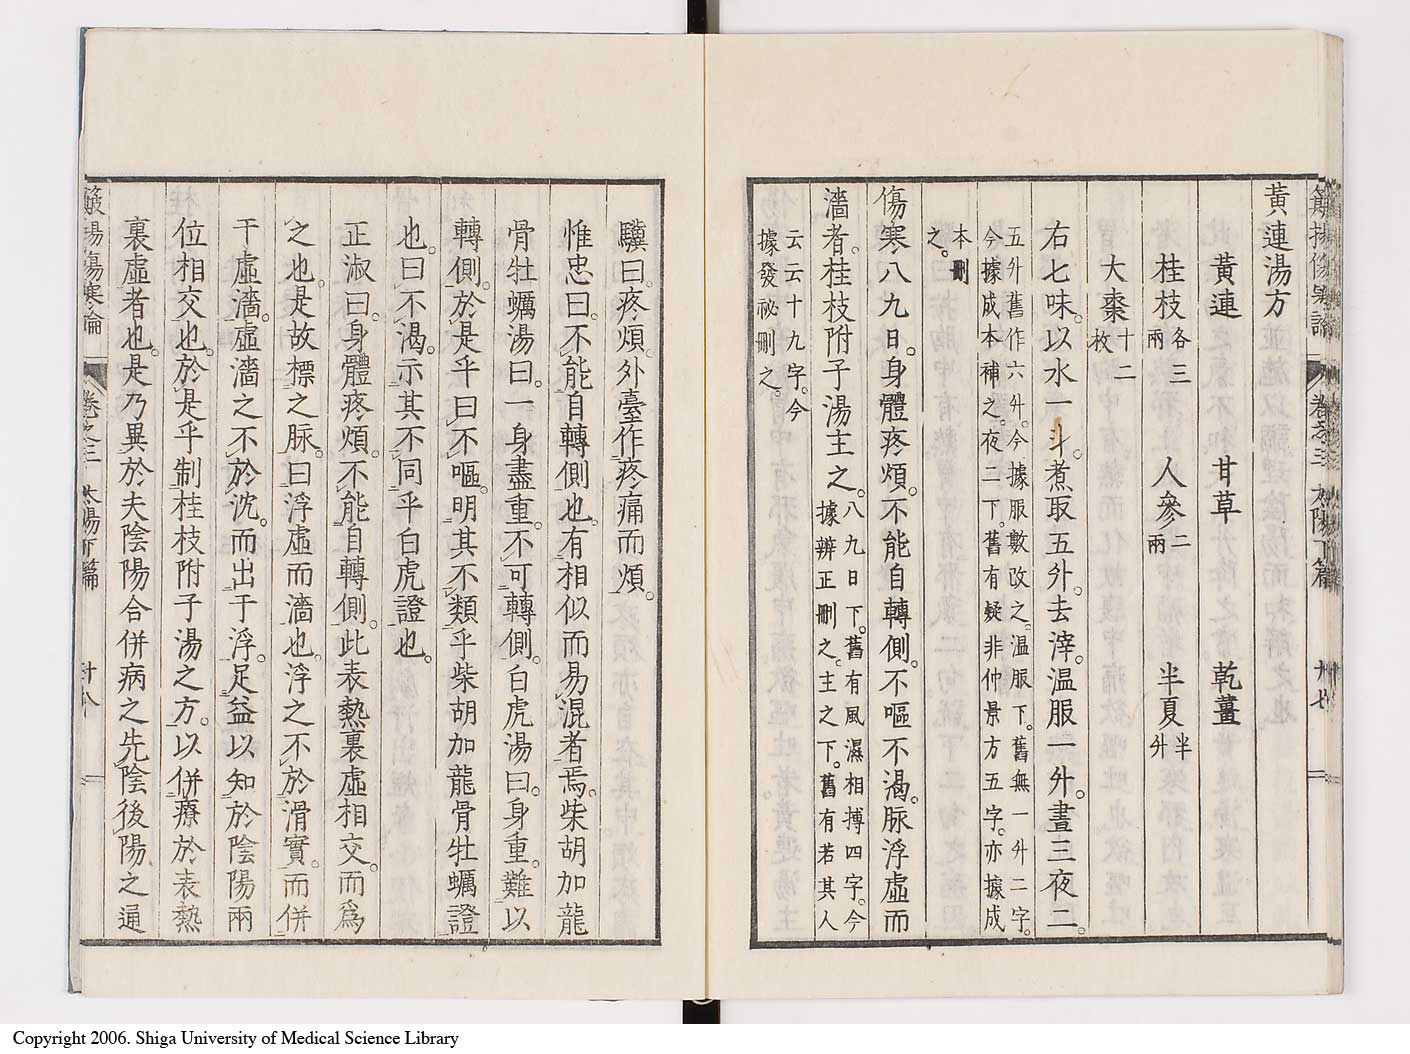 黃連湯方
黃連 甘草 乾薑
桂枝各三兩 人參二兩 半夏半升
大棗十二枚
右七味。以水一斗。煮取五升。去滓。溫服一升。晝三夜二。
五升舊作六升。今據服數改之。溫服下。舊無一升二字。
今據成本補之。夜二下。舊有疑非仲景方五字。亦據成
本刪
之。
傷寒八九日。身體疼煩。不能自轉側。不嘔不渴。脉浮虛而
濇者。桂枝附子湯主之。八九日下。舊有風濕相搏四字。今據辨正刪之。主之下。舊有若其人
云云十九字。今
據發祕刪之。
驥曰。疼煩。外臺作疼痛而煩。
惟忠曰。不能自轉側也。有相似而易混者焉。柴胡加龍
骨牡蠣湯曰。一身盡重。不可轉側。白虎湯曰。身重。難以
轉側。於是乎曰不嘔。明其不類乎柴胡加龍骨牡蠣證
也。曰不渴。示其不同乎白虎證也。
正淑曰。身體疼煩。不能自轉側。此表熱裏虛相交。而爲
之也。是故標之脉。曰浮虛而濇也。浮之不於滑實。而併
干虛濇。虛濇之不於沈。而出于浮。足益以知於陰陽兩
位相交也。於是乎制桂枝附子湯之方。以併療於表熱
裏虛者也。是乃異於夫陰陽合併病之先陰後陽之通
傷寒論
卷之三 太陽下篇
卷之三 太陽下篇 卅七